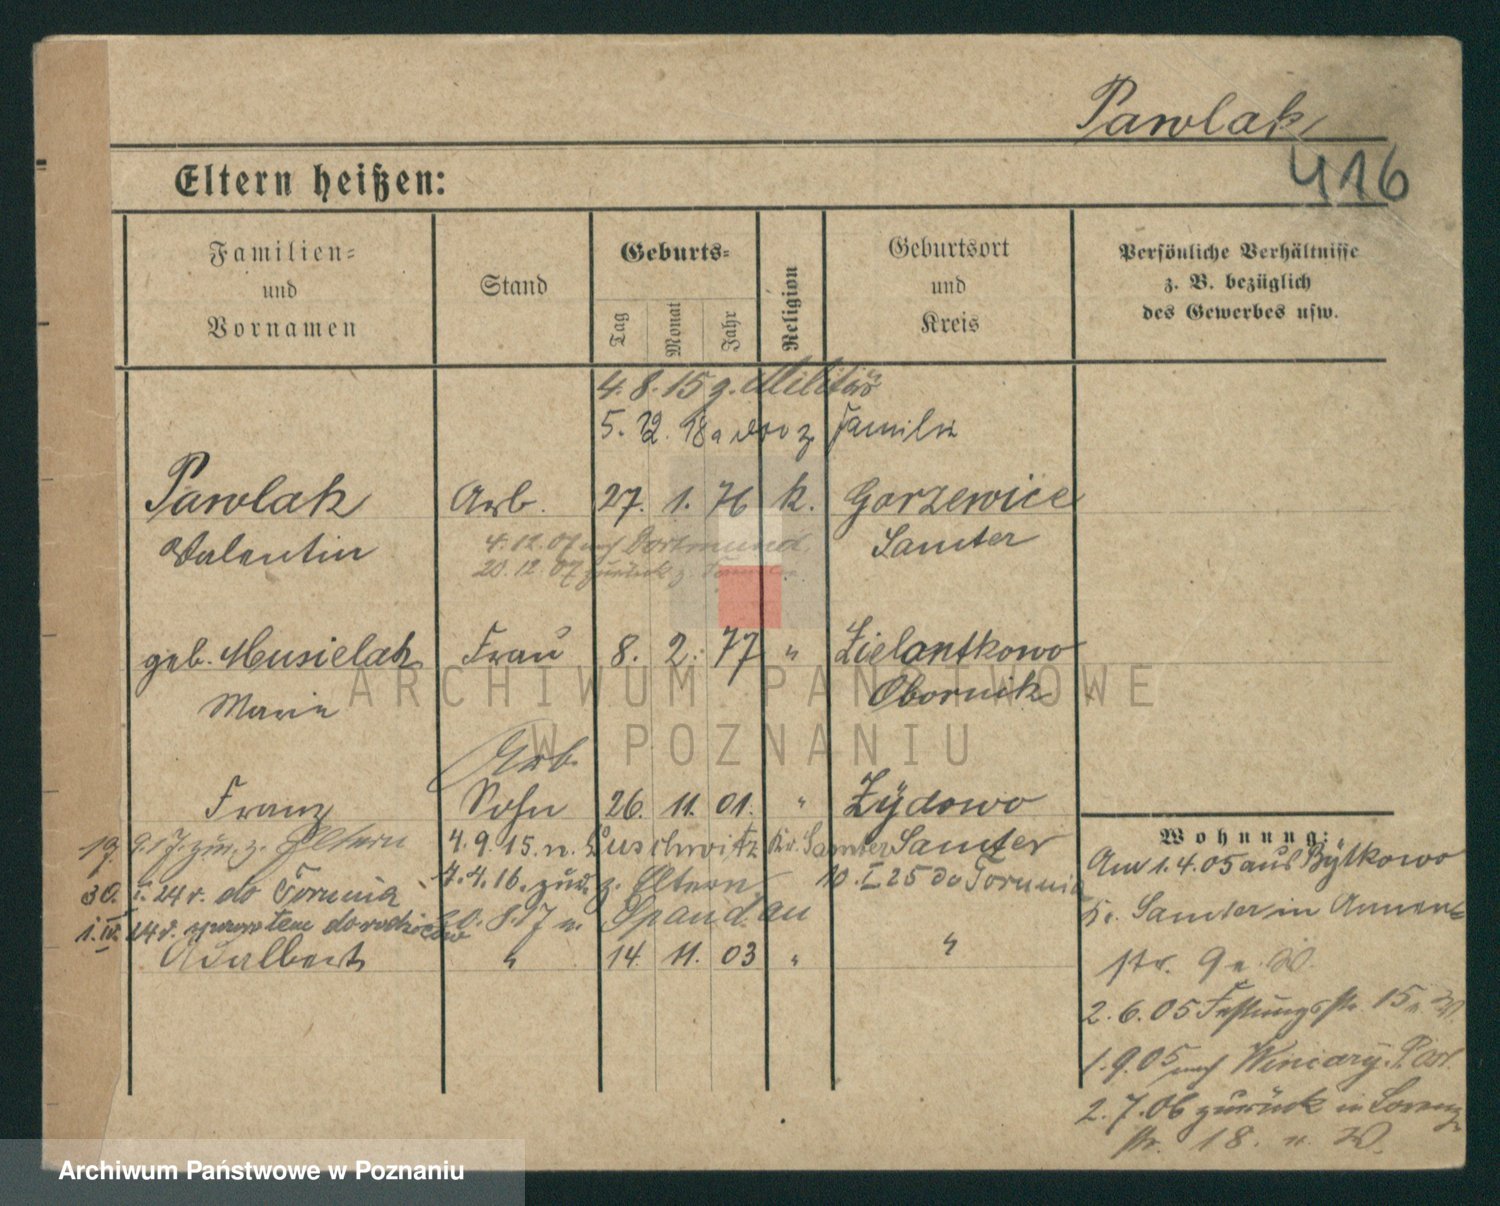 Pawlak
416
Eltern heißen:
Familien- und Vornamen
Stand
Geburts-
Tag
Monat
Jahr
Religion
Geburtsort und Kreis
Persönliche Verhältnisse z. B. bezüglich des Gewerbes usw.
4. 8. 15 z. Militär
5. 12. 18 z. Familie
Pawlak Arb. 27. 1. 76 k. Gorzewice
Valentin Samter
4. 12. 07 nach Dortmund
20. 12. 07 zurück z. Familie
geb. Musielak Frau 8. 2. 77 " Zielontkowo
Marie Obornik
Arb.
Franz Sohn 26. 11. 01. " Zydowo
Samter
zur. z. Eltern 4. 9. 15. n. Kr. Samter
30. I. 24 r. do Torunia 4. 4. 16. zur. z. Eltern 10. I 25 do Torunia
1. IV. 24 r. spowrotem do rodziców 20. 8. 17 n. Spandau
Adalbert " 14. 11. 03 " "
Wohnung:
Am 1. 4. 05 aus Bytkowo
Kr. Samter in Annen-
str. 9 a W.
2. 6. 05 Festungsstr. 15 a W.
1. 9. 05 nach Winiary
2. 7. 06 zurück in Lorenz-
str. 18. n W.
ARCHIWUM PAŃSTWOWE
W POZNANIU
Archiwum Państwowe w Poznaniu